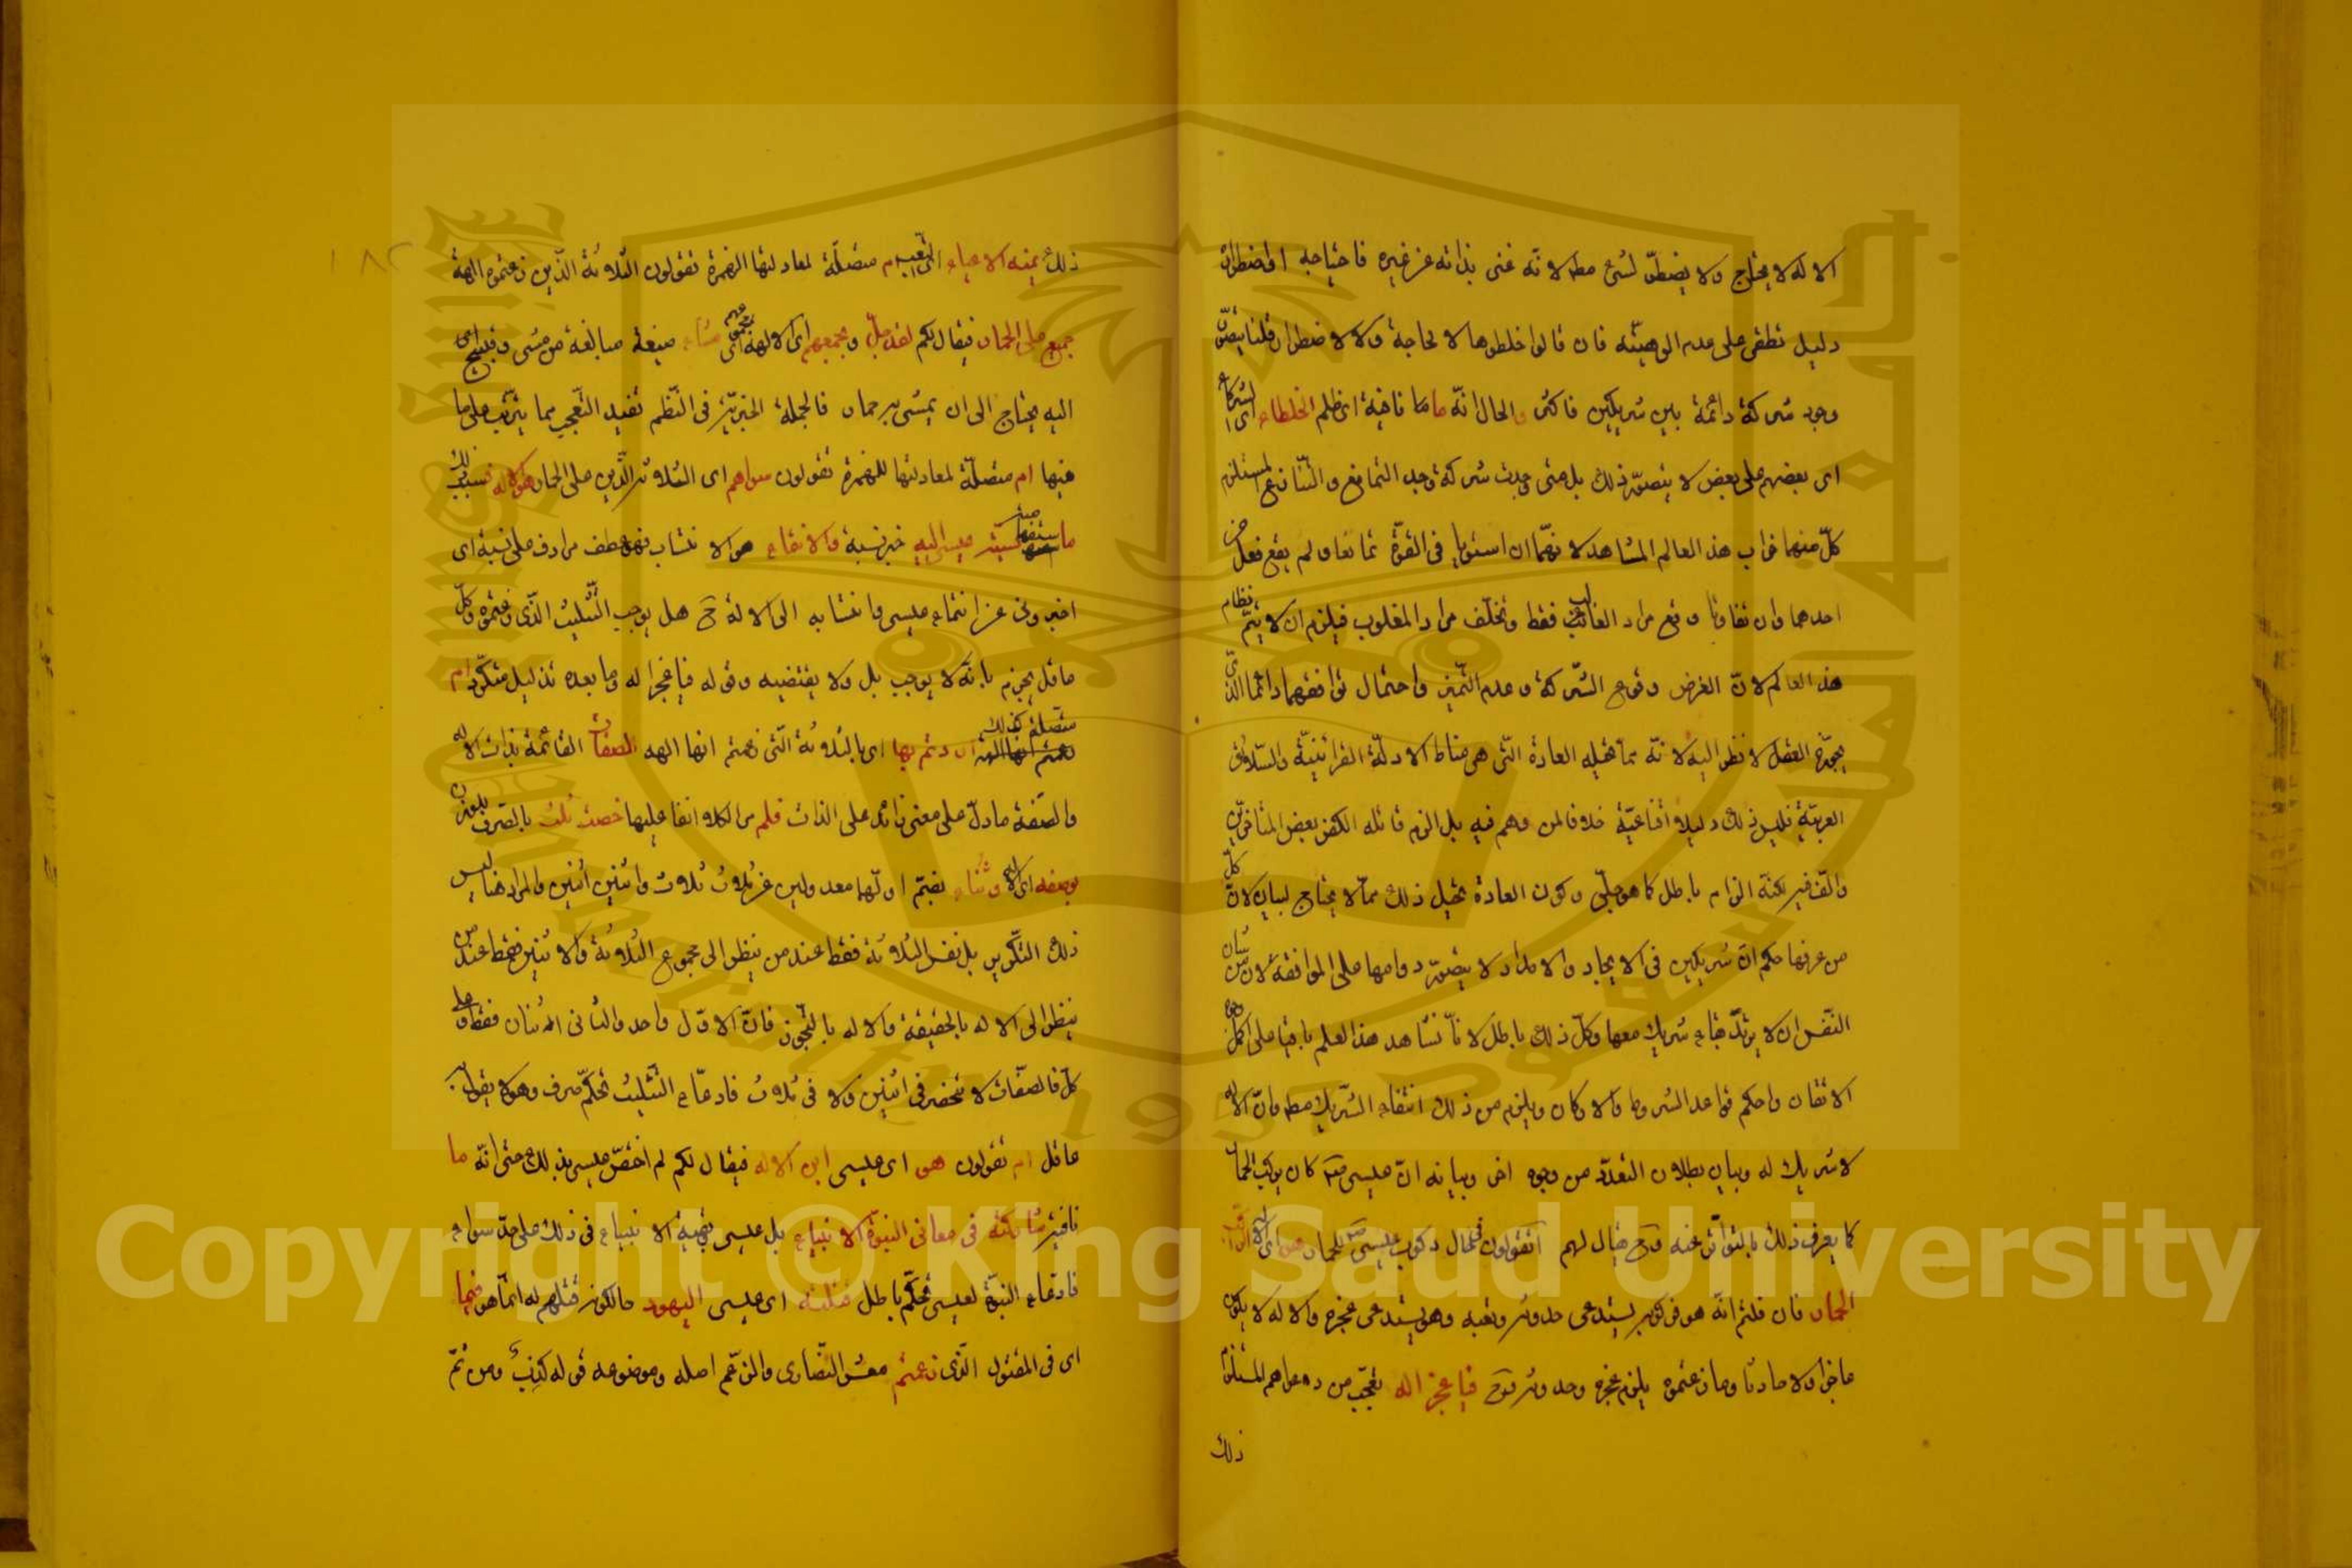 الاله لا يحتاج ولا يضطر لشئ مطلا لانه غنى بذاته عن غيره فاحتياجه او اضطراره
دليل قطعى على عدم الوهيته فان قالوا خلطوها لا لحاجة ولا لاضطرار قلنا يتصور
وجود شركة دائمة بين شريكين فاكثر والحال انه ما بنا ناخية اى ظلم الخلطاء اى الشركاء
اى بعضهم على بعض لا يتصور ذلك بل متى وجدت شركة وجد التمانع والتنازع المستلزم
كل منهما خراب هذا العالم المشاهد لانهما ان استويا فى القوة تمانعا ولم يقع فعل من
احدهما وان تفاوتا وقع مراد الغالب فقط وتخلف مراد المغلوب فيلزم ان لا يتم نظام
هذا العالم لان الغرض وقوع الشركة وعدم التميز واحتمال توافقهما دائما الذى
يجوزه العقل لا نظر اليه لانه مما تحيله العادة التى هى مناط الادلة القرآنية والسلائق
العربية فليس ذلك دليلا اقناعيا خلافا لمن وهم فيه بل الزم قائله الكفر بعض المتأخرين
والف فيه لكنه الزام باطل كما هو جلى وكون العادة تحيل ذلك مما لا يحتاج لبيان لان كل
من عرفها حكم ان شريكين فى الايجاد والامداد لا يتصور دوامها على الموافقة لان من شأن
النفس ان لا يرتد بقاء شريك معها وكل ذلك باطل لانا نشاهد هذا العلم باقيا على اكمل وجوه
الاتقان واحكم قواعد الشروط والاركان ويلزم من ذلك انتفاء الشريك مطلا وان الاله
لا شريك له وبيان بطلان التعدد من وجوه اخر وبيانه ان عيسى كان يركب الحمار
كما يعرف ذلك بالتواتر عنه وح فيقال لهم اتقولون فى حال ركوب عيسى للحمار هو اى الاله الراكب
الحمار فان قلتم انه هو فركوبه يستدعى حدوثه وتعبه وهو يستدعى عجزه والاله لا يكون
عاجزا ولا حادثا وما زعمتموه يلزم عجزه وحدوثه فوح فيا عجز اله تعجب من دعواهم المستلزم
ذلك
١٨٢
ذلك يمسه الاعياء اى التعب ام متصلة لمعادلتها الهمزة تقولون الثلاثة الذين زعمتموه الهة
جميع على الحمار فيقال لكم لقد جل وجمعهم اى الاله اى مجموعهم مشاء صيغة مبالغة من مشى وقبيح اى
اليه يحتاج الى ان يمشى به حمار فالجملة الخبرية فى النظم تفيد التعجب مما يترتب على ما
فيها ام متصلة لمعادلتها للهمزة تقولون سواهم اى الثلاثة الذين على الحمار هو الاله
ما نسبة عيسى اليه خبر نسبة والانتماء هو الانتساب فهو عطف مرادف على نسبة اى
اخبرونى عن انتماء عيسى وانتسابه الى الاله ح هل يوجب التثليث الذى زعمتموه وكل
عاقل يجزم بانه لا يوجب بل ولا يقتضيه وقوله فيا عجز اله وما بعده تذليل متكرر ام
متصلة كذلك اردتم بها اى بالثلاثة التى زعمتم انها الهه الصفات القائمة بذات الاله
والصفة ما دل على معنى زائد على الذات فلم مر الكلام انفا عليها خصت ثلث بالصرف للوزن
بوصفه اى الاله وثناء بضم اولهما معدولين عن ثلاث ثلاث واثنين اثنين والمراد هنا ليس
ذلك التكرير بل نفس الثلاثة فقط عند من ينظر الى مجموع الثلاثة والاثنين فقط عند من
ينظر الى الاله بالحقيقة والاله بالتجوز فان الاول واحد والثانى اثنان فقط وعلى
كل فالصفات لا تنحصر فى اثنين ولا فى ثلاث فادعاء التثليث تحكم صرف وهو لا يقول به
عاقل ام تقولون هو اى عيسى ابن الاله فيقال لكم لم اختص عيسى بذلك حتى انه ما
شاركته فى معانى النبوة الانبياء بل عيسى وبقية الانبياء فى ذلك على حد سواء
فادعاء النبوة لعيسى تحكم باطل قتلته اى عيسى اليهود حالكون قتلهم له انما هو فيما
اى فى المقتول الذى زعمتم معشر النصارى والزعم اصله وموضوعه قوله كذب ومن ثم
Copyright © King Saud University
King Saud University
جامعة الملك سعود
1957